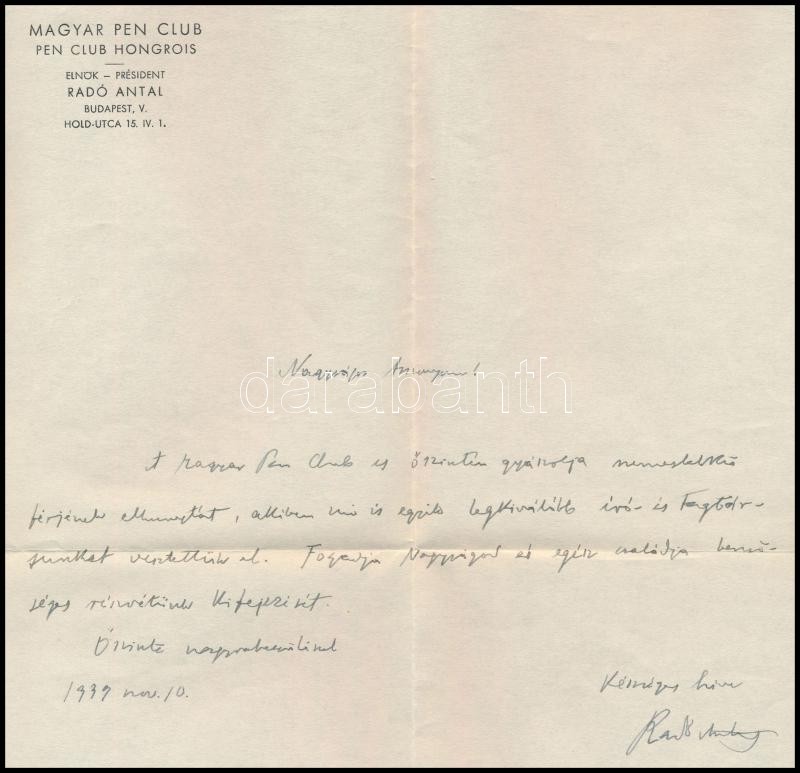 MAGYAR PEN CLUB
PEN CLUB HONGROIS
ELNÖK – PRÉSIDENT
RADÓ ANTAL
BUDAPEST, V.
HOLD-UTCA 15. IV. 1.
Nagyságos Asszonyom!
darabanth
A Magyar Pen Club is őszintén gyászolja nemeslelkű
férjének elhunytát, akiben mi is egyik legkiválóbb író- és tagtár-
sunkat vesztettük el. Fogadja Nagyságod és egész családja bensö-
séges részvétünk kifejezését.
Őszinte nagyrabecsüléssel
1939 nov. 10.
Készséges híve
Radó Antal